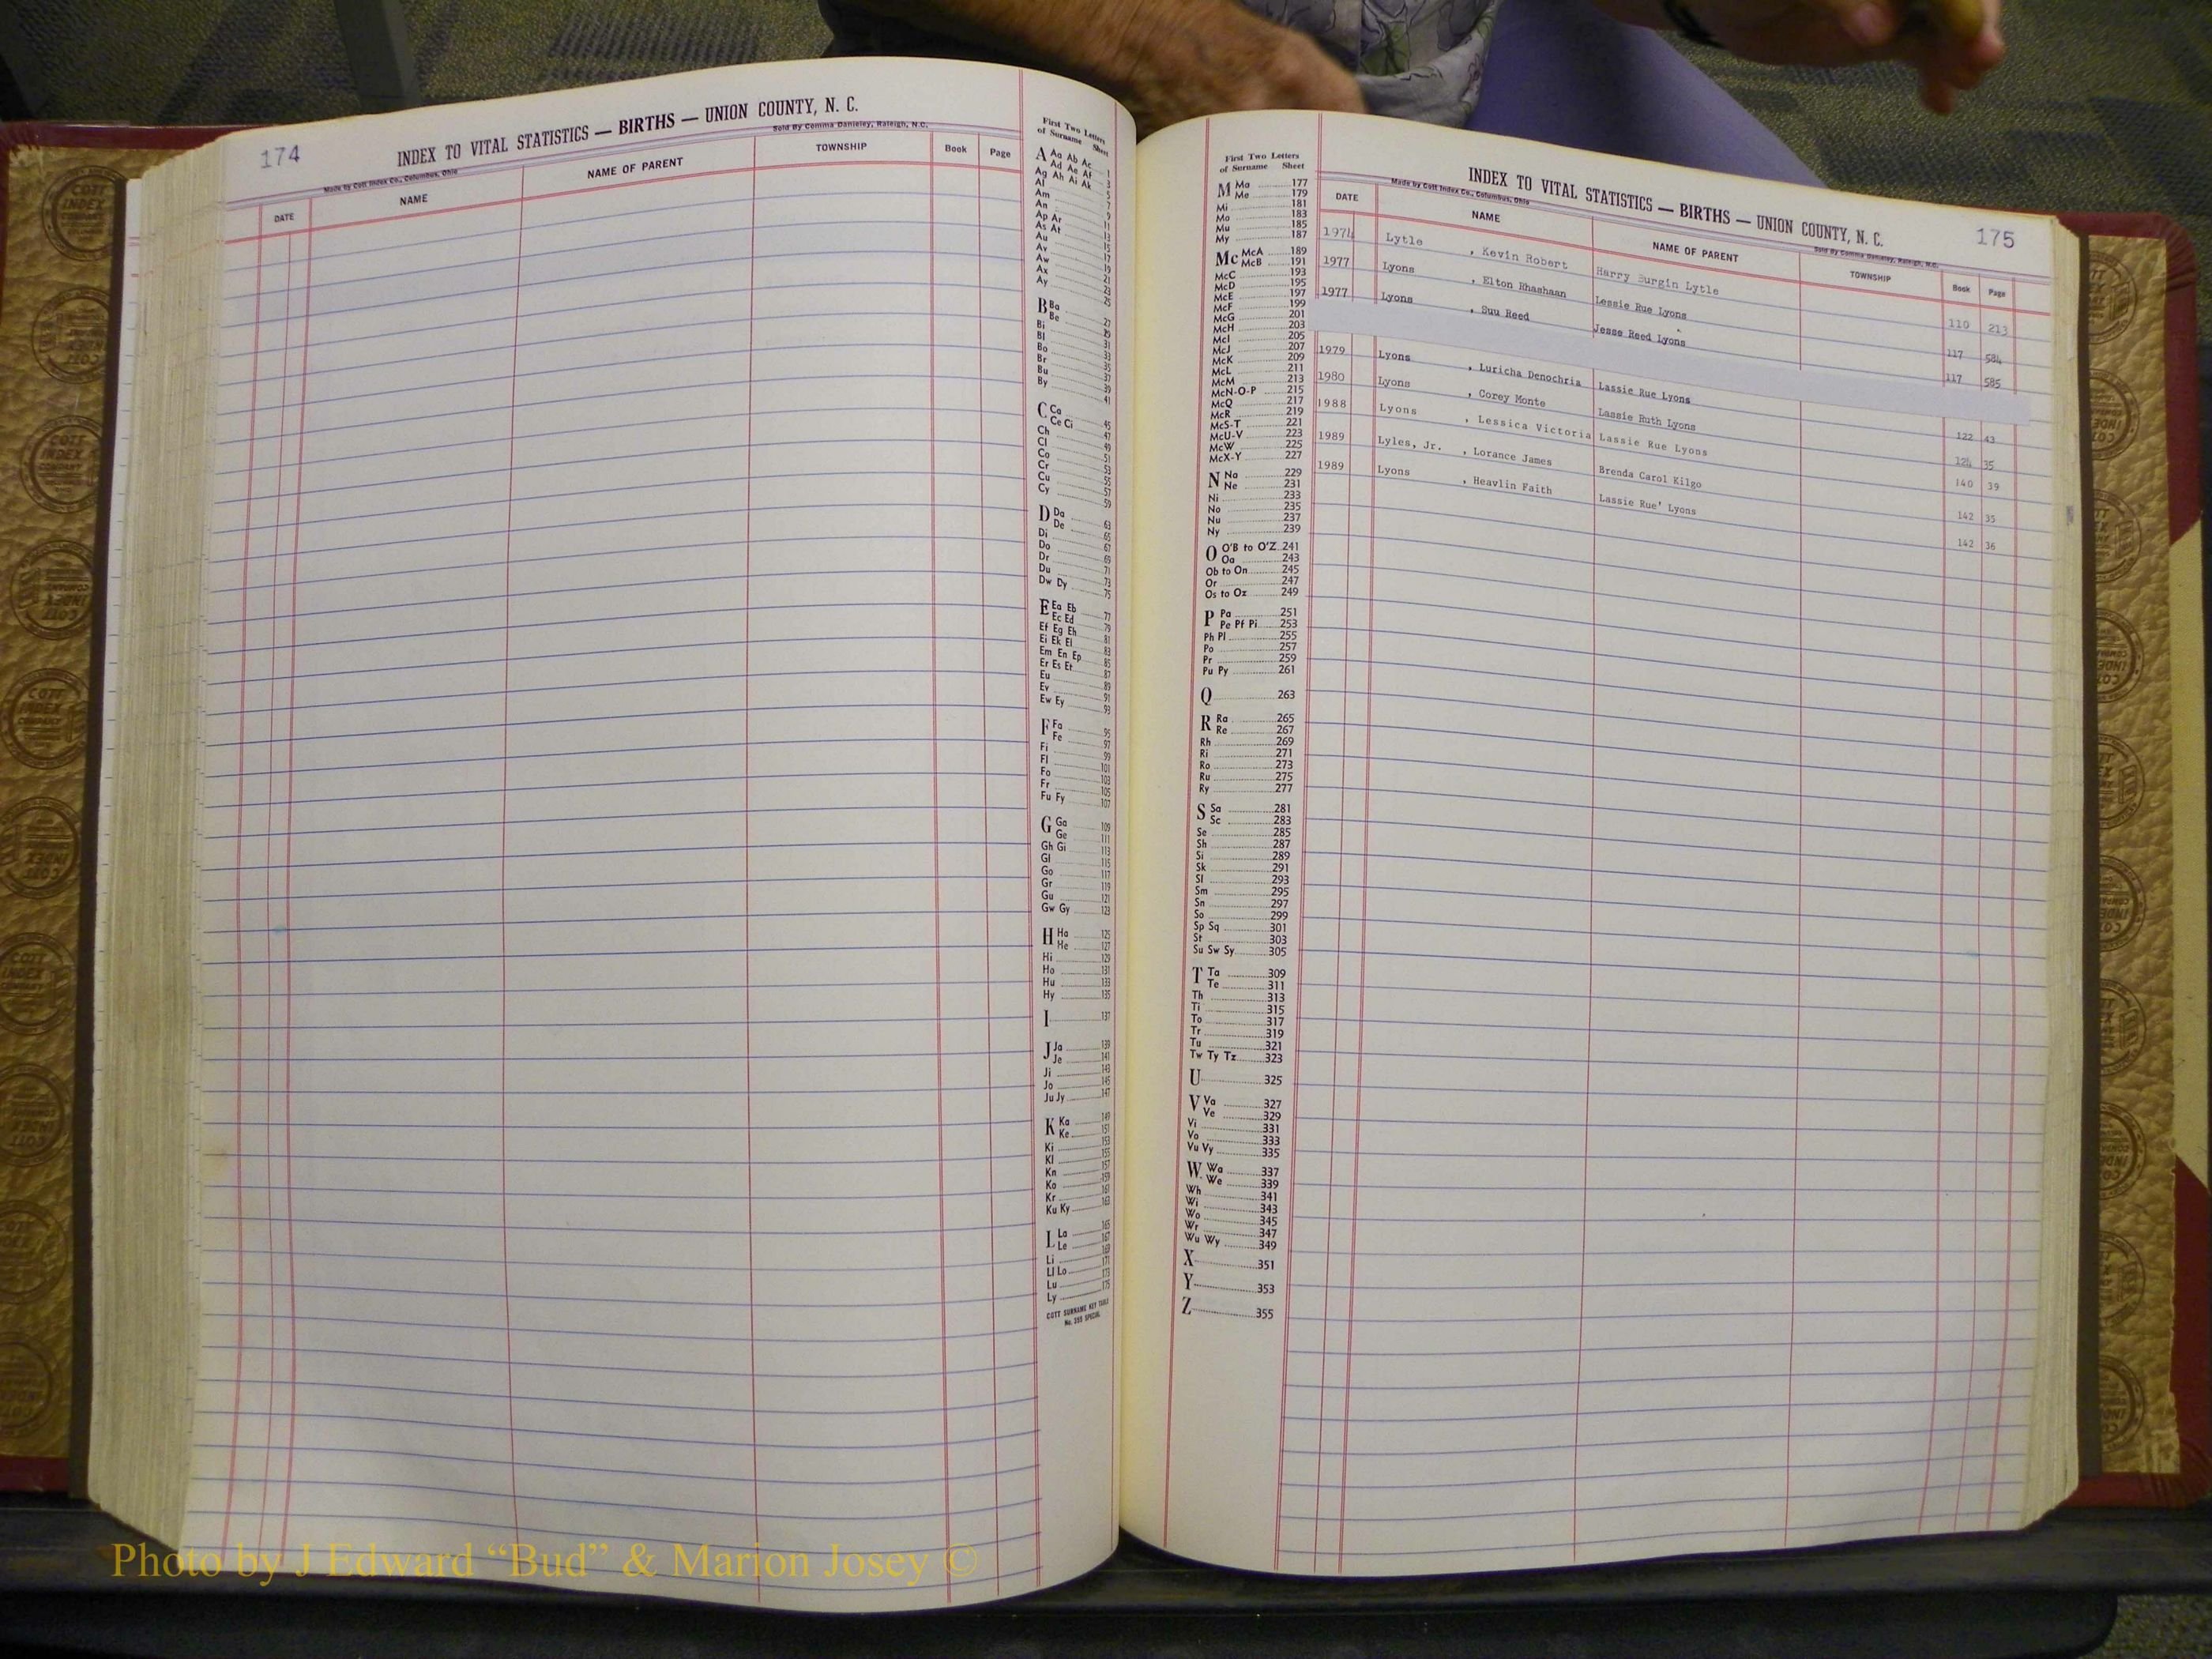 174
INDEX TO VITAL STATISTICS — BIRTHS — UNION COUNTY, N. C.
Made by Cott Index Co., Columbus, Ohio
Sold By Comma Danieley, Raleigh, N.C.
DATE NAME NAME OF PARENT TOWNSHIP Book Page
First Two Letters
of Surname Sheet
A Aa Ab Ac 1
Ad Ae Af 3
Ag Ah Ai Ak 5
Al 7
Am 9
An 11
Ap Ar 13
As At 15
Au 17
Av 19
Aw 21
Ax 23
Ay 25
B Ba 27
Be 29
Bi 31
Bl 33
Bo 35
Br 37
Bu 39
By 41
C Ca 45
Ce Ci 47
Ch 49
Cl 51
Co 53
Cr 55
Cu 57
Cy 59
D Da 63
De 65
Di 67
Do 69
Dr 71
Du 73
Dw Dy 75
E Ea Eb 77
Ec Ed 79
Ef Eg Eh 81
Ei Ek El 83
Em En Ep 85
Er Es Et 87
Eu 89
Ev 91
Ew Ey 93
F Fa 95
Fe 97
Fi 99
Fl 101
Fo 103
Fr 105
Fu Fy 107
G Ga 109
Ge 111
Gh Gi 113
Gl 115
Go 117
Gr 119
Gu 121
Gw Gy 123
H Ha 125
He 127
Hi 129
Ho 131
Hu 133
Hy 135
I 137
J Ja 139
Je 141
Ji 143
Jo 145
Ju Jy 147
K Ka 149
Ke 151
Ki 153
Kl 155
Kn 157
Ko 159
Kr 161
Ku Ky 163
L La 165
Le 167
Li 169
Ll Lo 171
Lu 173
Ly 175
COTT SURNAME KEY TABLE
No. 355 SPECIAL
First Two Letters
of Surname Sheet
M Ma 177
Me 179
Mi 181
Mo 183
Mu 185
My 187
Mc McA 189
McB 191
McC 193
McD 195
McE 197
McF 199
McG 201
McH 203
McI 205
McJ 207
McK 209
McL 211
McM 213
McN-O-P 215
McQ 217
McR 219
McS-T 221
McU-V 223
McW 225
McX-Y 227
N Na 229
Ne 231
Ni 233
No 235
Nu 237
Ny 239
O O'B to O'Z 241
Oa 243
Ob to On 245
Or 247
Os to Oz 249
P Pa 251
Pe Pf Pi 253
Ph Pl 255
Po 257
Pr 259
Pu Py 261
Q 263
R Ra 265
Re 267
Rh 269
Ri 271
Ro 273
Ru 275
Ry 277
S Sa 281
Sc 283
Se 285
Sh 287
Si 289
Sk 291
Sl 293
Sm 295
Sn 297
So 299
Sp Sq 301
St 303
Su Sw Sy 305
T Ta 309
Te 311
Th 313
Ti 315
To 317
Tr 319
Tu 321
Tw Ty Tz 323
U 325
V Va 327
Ve 329
Vi 331
Vo 333
Vu Vy 335
W Wa 337
We 339
Wh 341
Wi 343
Wo 345
Wr 347
Wu Wy 349
X 351
Y 353
Z 355
INDEX TO VITAL STATISTICS — BIRTHS — UNION COUNTY, N. C.
175
Made by Cott Index Co., Columbus, Ohio
Sold By Comma Danieley, Raleigh, N.C.
DATE NAME NAME OF PARENT TOWNSHIP Book Page
1974 Lytle , Kevin Robert Harry Burgin Lytle 110 213
1977 Lyons , Elton Rhashaan Lessie Rue Lyons 117 584
1977 Lyons , Suu Reed Jesse Reed Lyons 117 585
1979 Lyons , Luricha Denochria Lassie Rue Lyons 122 43
1980 Lyons , Corey Monte Lassie Ruth Lyons 124 35
1988 Lyons , Lessica Victoria Lassie Rue Lyons 140 39
1989 Lyles, Jr. , Lorance James Brenda Carol Kilgo 142 35
1989 Lyons , Heavlin Faith Lassie Rue' Lyons 142 36
Photo by J Edward “Bud” & Marion Josey ©